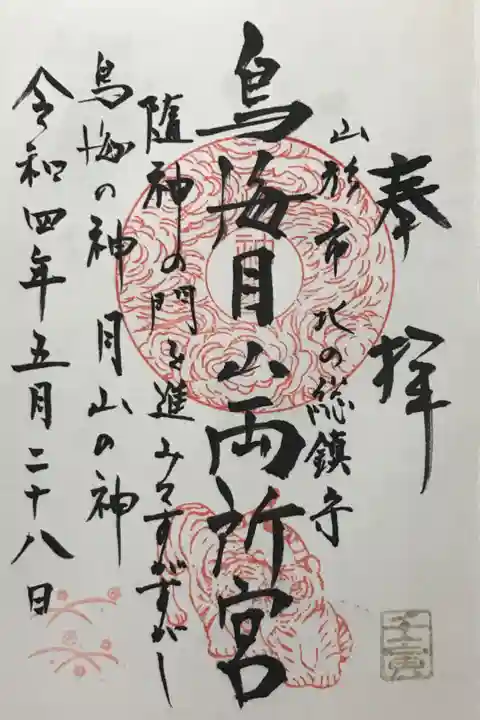 奉拝
山形市北の総鎮守
鳥海月山両所宮
随神の門を進みてすがすがし
鳥海の神月山の神
令和四年五月二十八日
壬寅